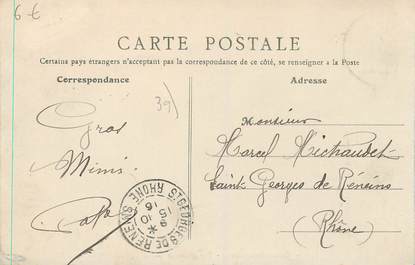 6 €
CARTE POSTALE
Certains pays étrangers n'acceptant pas la correspondance de ce côté, se renseigner à la Poste
Correspondance
Adresse
39)
Gros
Mimis
Monsieur
Marcel Michaudet
Saint Georges de Reneins
(Rhône)
ST GEORGES DE RENEINS RHONE
10
15-9
16